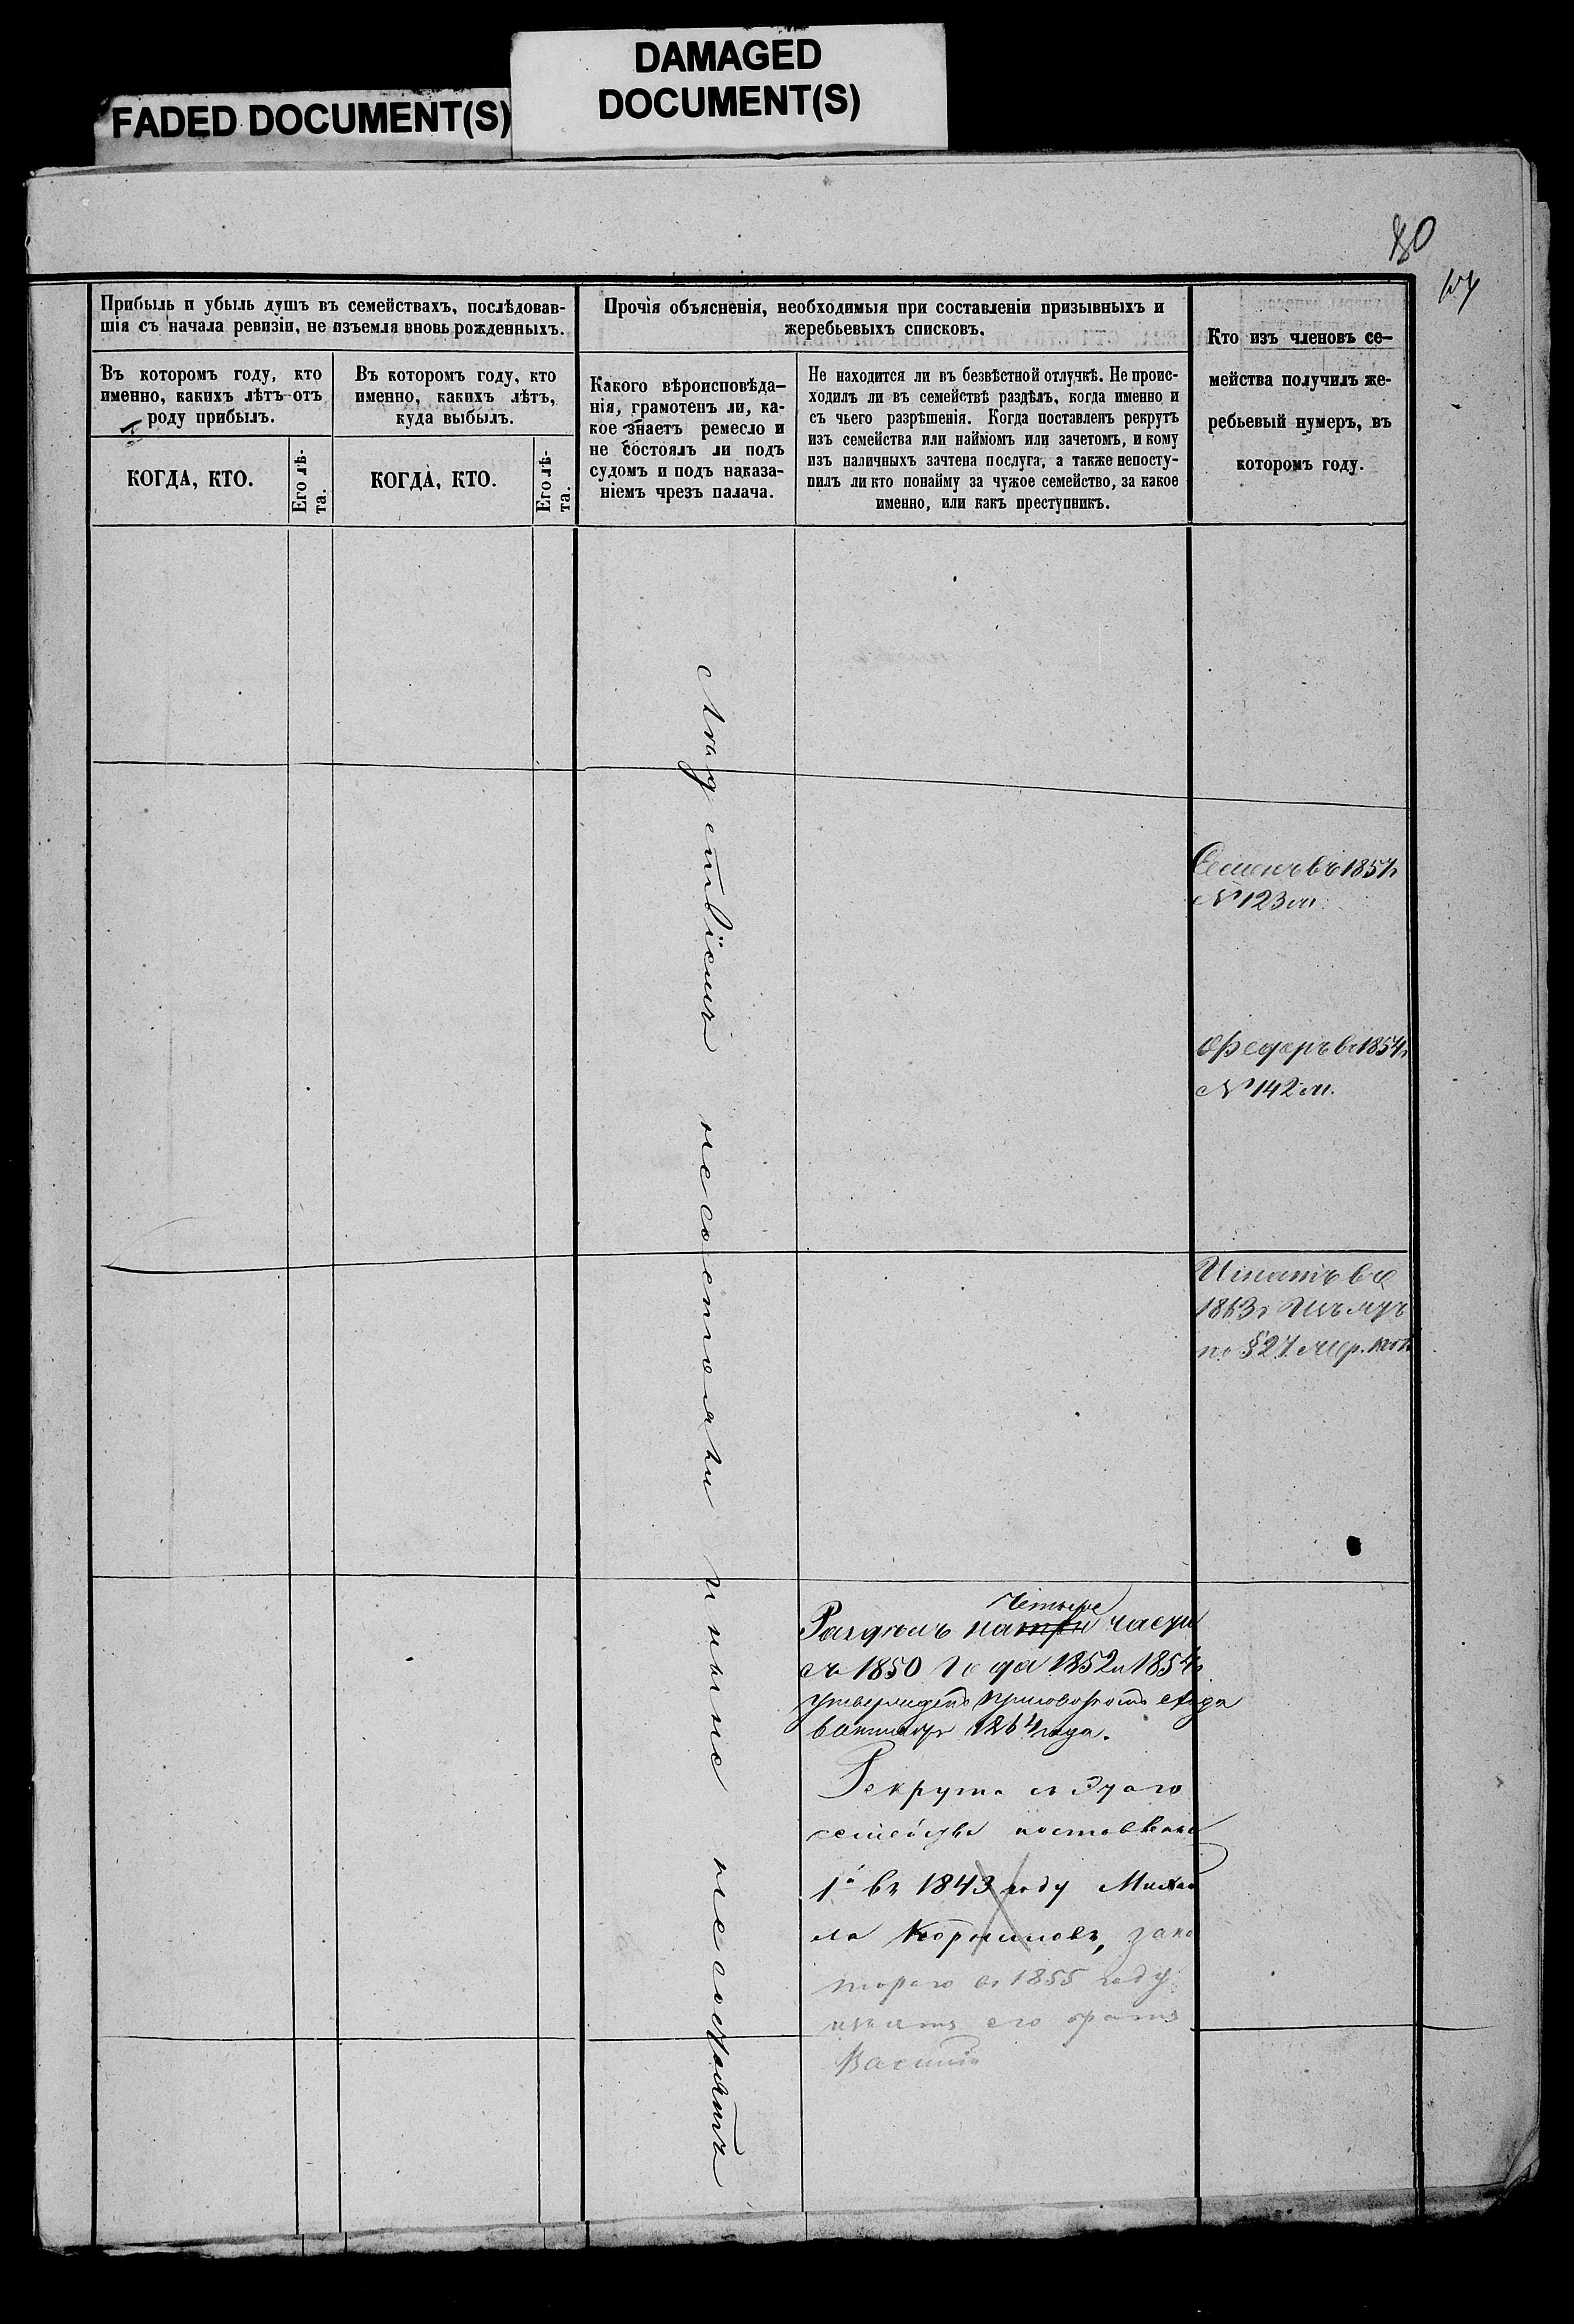 FADED DOCUMENT(S)
DAMAGED
DOCUMENT(S)
80
Прибыль и убыль душъ въ семействахъ, послѣдовав-
шія съ начала ревизіи, не изъемля вновь рожденныхъ.
Въ которомъ году, кто
именно, какихъ лѣтъ отъ
роду прибылъ.
КОГДА, КТО.
Его лѣ-
та.
Въ которомъ году, кто
именно, какихъ лѣтъ,
куда выбылъ.
КОГДА, КТО.
Его лѣ-
та.
Прочія объясненія, необходимыя при составленіи призывныхъ и
жеребьевыхъ списковъ.
Какого вѣроисповѣда-
нія, грамотенъ ли, ка-
кое знаетъ ремесло и
не состоялъ ли подъ
судомъ и подъ наказа-
ніемъ чрезъ палача.
Не находится ли въ безвѣстной отлучкѣ. Не проис-
ходилъ ли въ семействѣ раздѣлъ, когда именно и
съ чьего разрѣшенія. Когда поставленъ рекрутъ
изъ семейства или наймомъ или зачетомъ, и кому
изъ наличныхъ зачтена послуга, а также непосту-
пилъ ли кто понайму за чужое семейство, за какое
именно, или какъ преступникъ.
Кто изъ членовъ се-
мейства получилъ же-
ребьевый нумеръ, въ
которомъ году.
несостояли и ныне несостоятъ
Семенъ въ 1854
№ 123
Федоръ въ 1854
№ 142
Игнатъ въ
1863
по § 27
Четыре
Разделъ на три части
съ 1850 года 1852 и 1854
утвержденъ приговоромъ
1864 года.
Рекрута съ этаго
семейства поставлено
1й въ 1843 году Михаи
ла Корнилова, зако
тораго въ 1855 году
его братъ
Василій